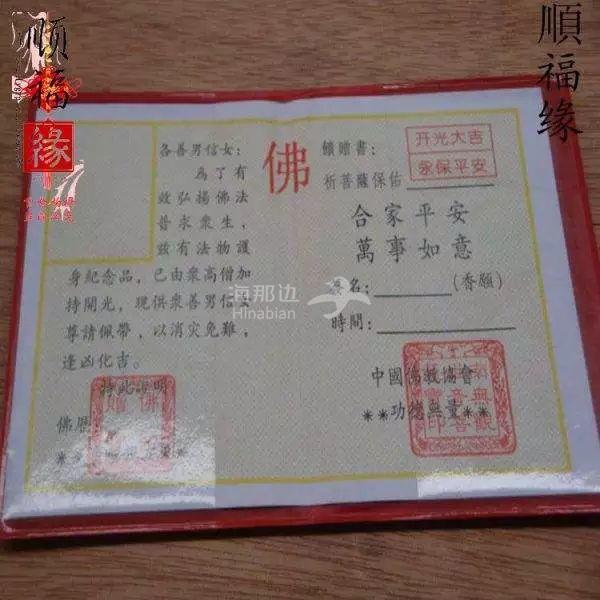 順福缘
順福缘
各善男信女：
為了有
效弘揚佛法
普求衆生，
兹有法物護
身紀念品，已由衆高僧加
持開光，現供衆善男信女
尊請佩帶，以消灾免難，
逢凶化吉。
特此説明
佛曆
佛
饋贈書：
开光大吉
永保平安
祈菩薩保佑
合家平安
萬事如意
签名：(香願)
時間：
中國佛教協會
**功德無量**
海那边
Hinabian